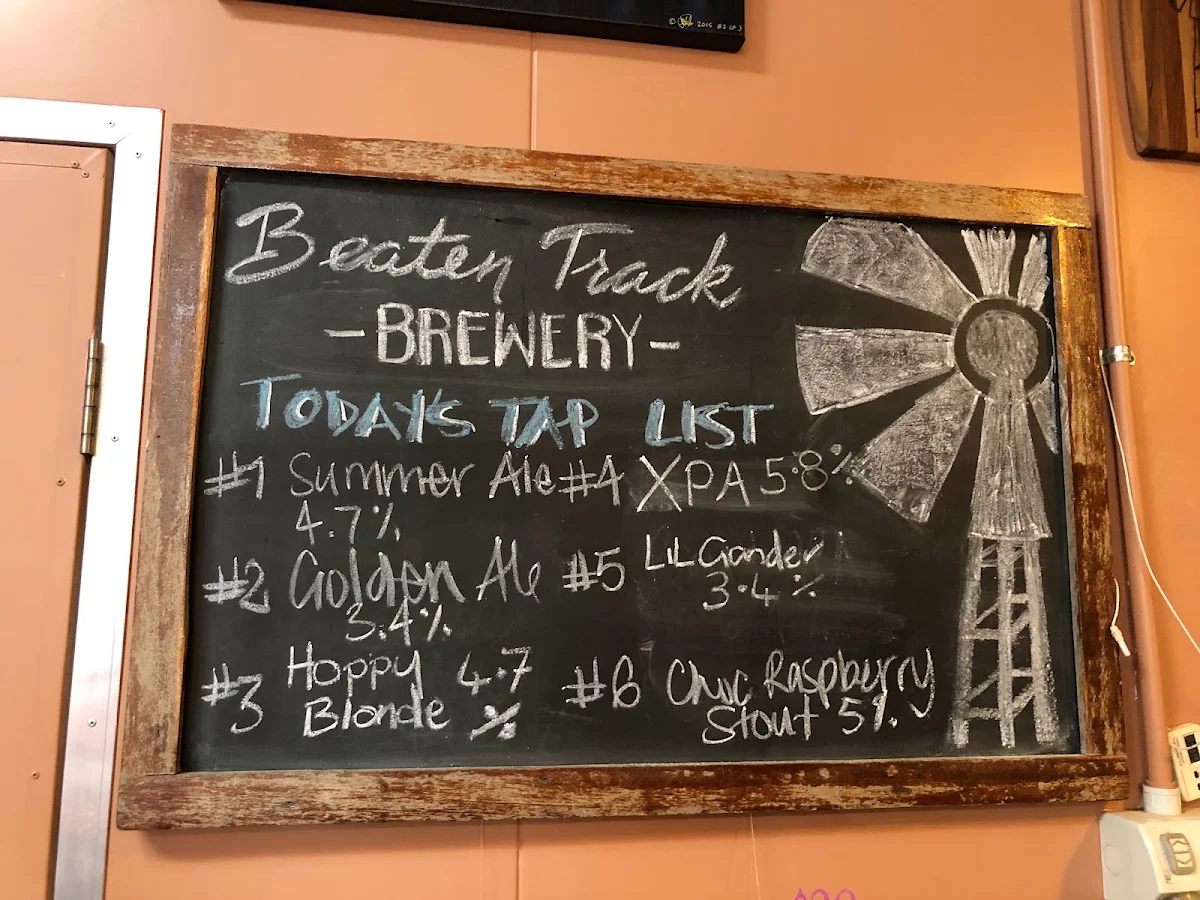 © 2015 #2 OF 3
Beaten Track
-BREWERY-
TODAY'S TAP LIST
#1 Summer Ale
4.7%
#2 Golden Ale
3.4%
#3 Hoppy 4.7
Blonde %
#4 XPA 5.8%
#5 LiL Gander
3.4%
#6 Choc Raspberry
Stout 5%.